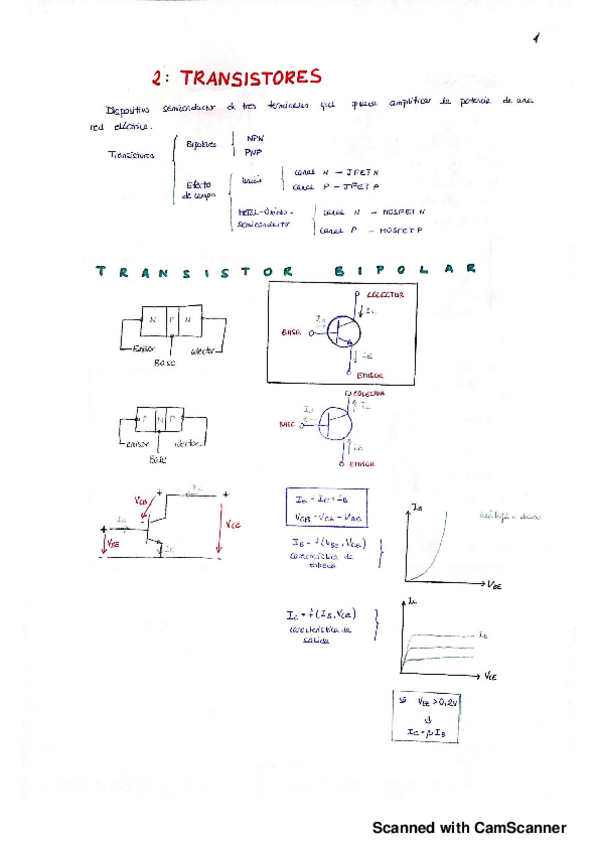 1
2: TRANSISTORES
Dispositivo semiconductor de tres terminales que puede amplificar la potencia de una
red eléctrica.
Transistores
Bipolares
NPN
PNP
Efecto
de campo
Unión
canal N → JFET N
canal P → JFET P
Metal-Óxido-
semiconductor
canal N → MOSFET N
canal P → MOSFET P
TRANSISTOR BIPOLAR
N P N
Emisor
colector
Base
COLECTOR
IC
IB
BASE
IE
EMISOR
P N P
Emisor
colector
Base
COLECTOR
IC
IB
BASE
IE
EMISOR
VCB
IC
IB
VBE
IE
VCE
IE = IC + IB
VCB = VCE - VBE
IB = f(VBE, VCE)
característica de
entrada
IB
VBE
IC = f(IB, VCE)
característica de
salida
IC
IB
VCE
si VCE > 0,2V
IC = β IB
Scanned with CamScanner